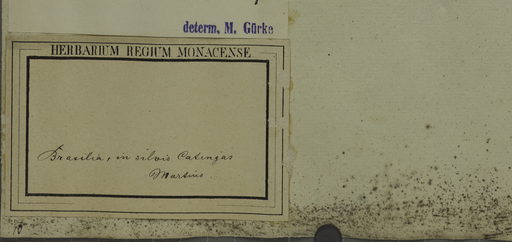 determ. M. Gürke
HERBARIUM REGIUM MONACENSE
Brasilia, in silvis Catingas
Martius